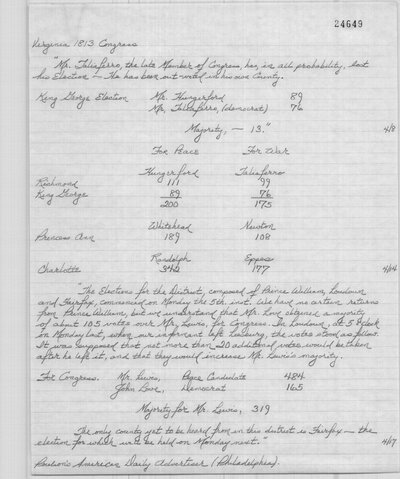 24649
Virginia 1813 Congress
"Mr. Taliaferro, the late Member of Congress, has, in all probability, lost
his Election — He has been out voted in his own County.
King George Election Mr. Hungerford 89
Mr. Taliaferro, (democrat) 76
Majority, — 13."
4/8
For Peace For War
Hungerford Taliaferro
Richmond 111 99
King George 89 76
200 175
Whitehead Newton
Princess Ann 189 108
Randolph Eppes
Charlotte 344 177
"The Elections for the District, composed of Prince William, Loudoun
and Fairfax, commenced on Monday the 5th inst. We have no certain returns
from Prince William, but we understand that Mr. Love obtained a majority
of about 105 votes over Mr. Lewis, for Congress. In Loudoun, at 5 o'clock
on Monday last, when our informant left Leesburg, the votes stood as follow.
It was supposed that not more than 20 additional votes would be taken
after he left it, and that they would increase Mr. Lewis's majority.
For Congress. Mr. Lewis, Peace Candidate 484
John Love, Democrat 165
Majority for Mr. Lewis, 319
The only county yet to be heard from in this district is Fairfax — the
election for which will be held on Monday next."
4/17
Poulson's American Daily Advertiser (Philadelphia).